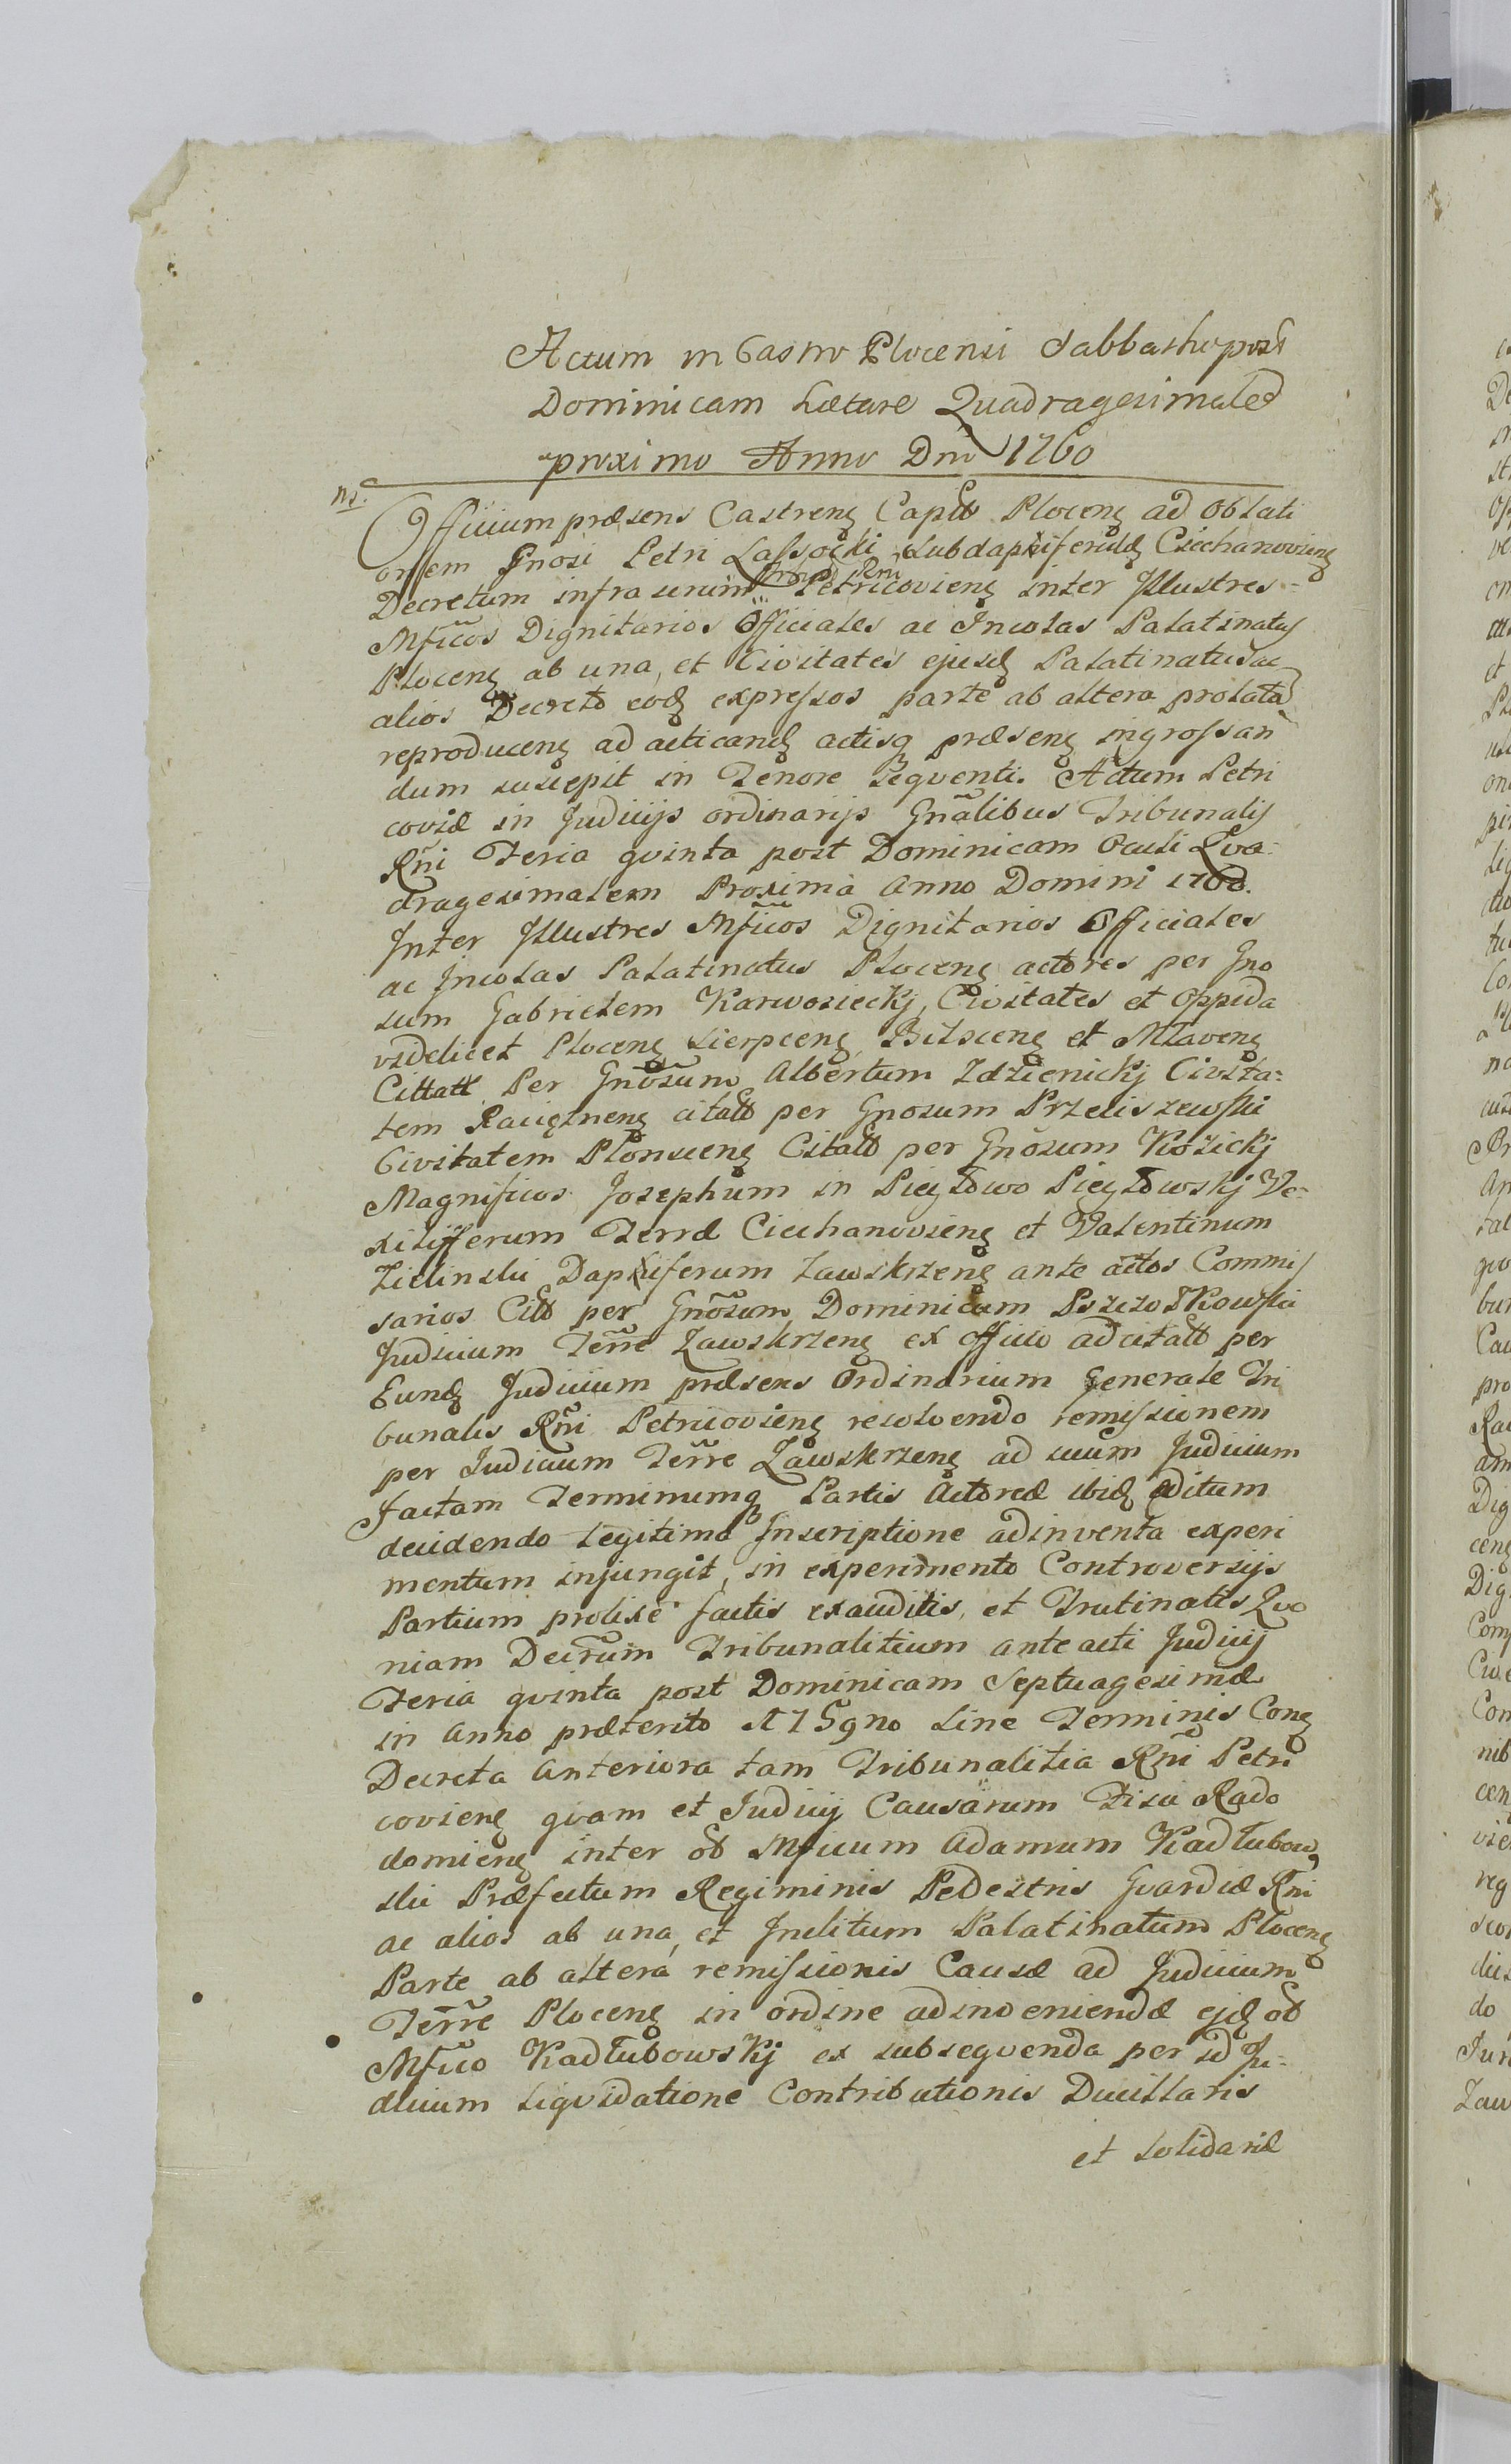 Actum in Castro Plocensi Sabbatho post
Dominicam Lætare Quadragesimalem
proximo Anno Dni 1760
Officium præsens Castrenȩ Capit Plocenȩ ad Oblati
onem Gnosi Petri Lassocki Subdapiferidȩ Ciechanoviens
Decretum infra scrim Trnlis Rni Petricovienȩ inter Illustres
Mficos Dignitarios Officiales ac Incolas Palatinatus
Plocenȩ ab una, et Civitates ejusdȩ Palatinatus ac
alios Decreto eodȩ expressos parte ab altera prolata
reproducenȩ ad acticandȩ actisq præsenȩ ingrossan
dum suscepit in Tenore seqventi. Actum Petri
coviæ in Judicijs ordinarijs Gnalibus Tribunalis
Rñi Feria qvinta post Dominicam Oculi Qva:
dragesimalem Proxima Anno Domini 1760.
Inter Illustres Mficos Dignitarios Officiales
ac Incolas Palatinatus Plocenȩ actores per Gno
sum Gabrielem Karwosieckj, Civitates et Oppida
videlicet Plocenȩ Sierpcenȩ Bilscenȩ et Mlavenȩ
Cittatt Per Gnosum Albertum Zdzienickj Civita:
tem Raciąznenȩ citatt per Gnosum Przeliszewski
Civitatem Plonscenȩ Citatt per Gnosum Kozickj
Magnificos Josephum in Piegłowo Piegłowskj Ve:
xilifferum Terræ Ciechanovienȩ et Valentinum
Zielinski Dapiferum Zawskrzenȩ ante actos Commis
sarios Citt per Gnosum Dominicum Pszczołkowski
Judicium Terre Zawskrzenȩ ex officio adcitatt per
Eundȩ Judicium præsens Ordinarium Generale Tri
bunalis Rñi Petricovienȩ resolvendo remissionem
per Judicium Terre Zawskrzenȩ ad suum Judicium
factam Terminumq Partis Actoreæ ibidȩ editum
decidendo legitima Inscriptione adinventa experi
mentum injungit, in experimento Controversijs
Partium prolixe factis exauditis, et Trutinatis Qvo
niam Decrum Tribunalitium ante acti Judicij
Feria qvinta post Dominicam Septuagesimæ
in Anno præterito 1759no Sine Terminis Conȩ
Decreta Anteriora tam Tribunalitia Rñi Petri
covienȩ qvam et Judicij Causarum Fisci Rado
domienȩ inter ol Mficum Adamum Kadłubow
ski Præfectum Regiminis Pedestris Gvardiæ Rni
ac alios ab una, et Inclitum Palatinatum Plocenȩ
Parte ab altera remissionis Causæ ad Judicium
Terre Plocenȩ in ordine adinveniendæ ejdȩ ol
Mfico Kadłubowskj ex subseqvenda per id Ju:
dicium Liqvidatione Contributionis Ducillaris
et Solidariæ